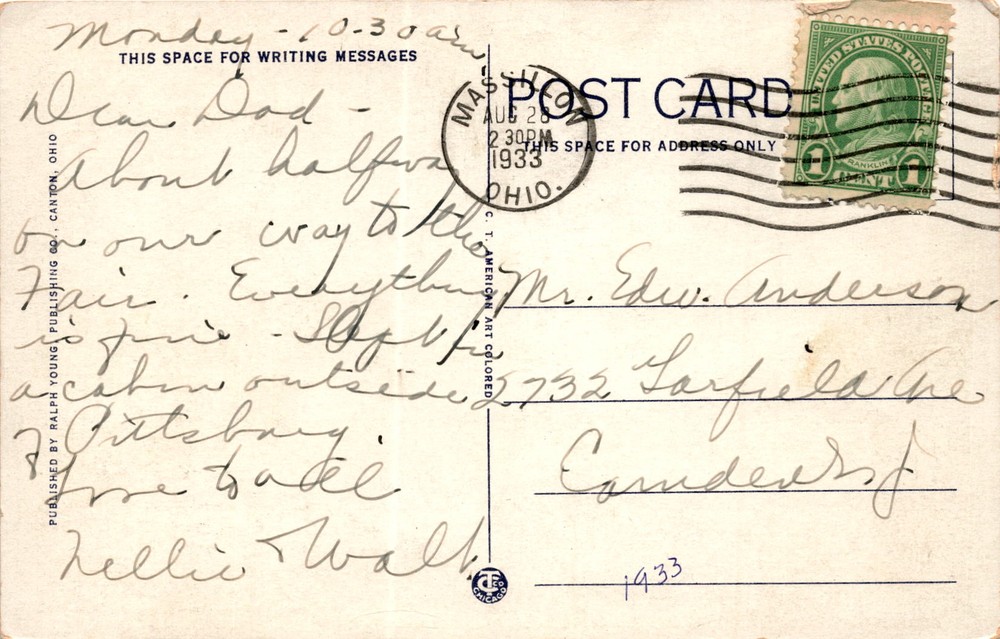 Monday - 10-30 am
THIS SPACE FOR WRITING MESSAGES
Dear Dad -
About halfway
on our way to the
Fair. Everything
is fine - Slept in
a cabin outside
of Pittsburg.
Love to all
Nellie & Walt.
PUBLISHED BY RALPH YOUNG PUBLISHING CO., CANTON, OHIO
C. T. AMERICAN ART COLORED
CT
CHICAGO
MASSILLON
AUG 28
2 30PM
1933
OHIO.
POST CARD
THIS SPACE FOR ADDRESS ONLY
UNITED STATES POSTAGE
FRANKLIN
1 CENT 1
Mr. Edw. Anderson
2732 Garfield Ave
Camden N J
1933